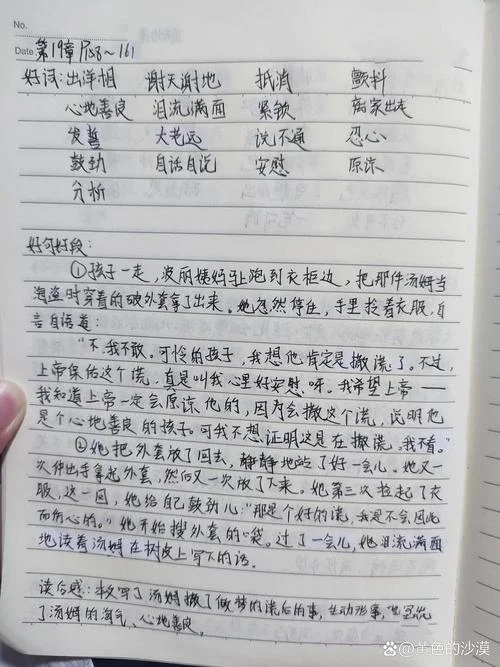 No.
Date 第19章 P158~161
好词:出洋相 谢天谢地 抵消
心地善良 泪流满面 紧锁 离家出走
发誓 大老远 说不通 忍心
鼓劲 自话自说 安慰 原谅
分析
好句好段:
①孩子一走,波丽姨妈马上跑到衣柜边,把那件汤姆当
海盗时穿着的破外套拿了出来。她忽然停住,手里拎着衣服,自
言自语道:
“不,我不敢。可怜的孩子,我想他肯定是撒谎了。不过,
上帝保佑这个谎,真是叫我心里好安慰呀。我希望上帝——
我知道上帝一定会原谅他的,因为会撒这个谎,说明他
是个心地善良的孩子。可我不想证明这是在撒谎。我不看。”
②她把外套放了回去,静静地站了好一会儿。她又一
次伸出手拿起外套,然后又一次放了下来。她第三次拉起了衣
服,这一回,她给自己鼓劲儿:“那是个好的谎,我是不会因此
而伤心的。”她开始搜外套的口袋。过了一会儿,她泪流满面
地读着汤姆在树皮上写下的话。
读后感:本写了汤姆撒了做梦的谎后的事,生动形象,写出
了汤姆的淘气、心地善良。
@黄色的沙漠